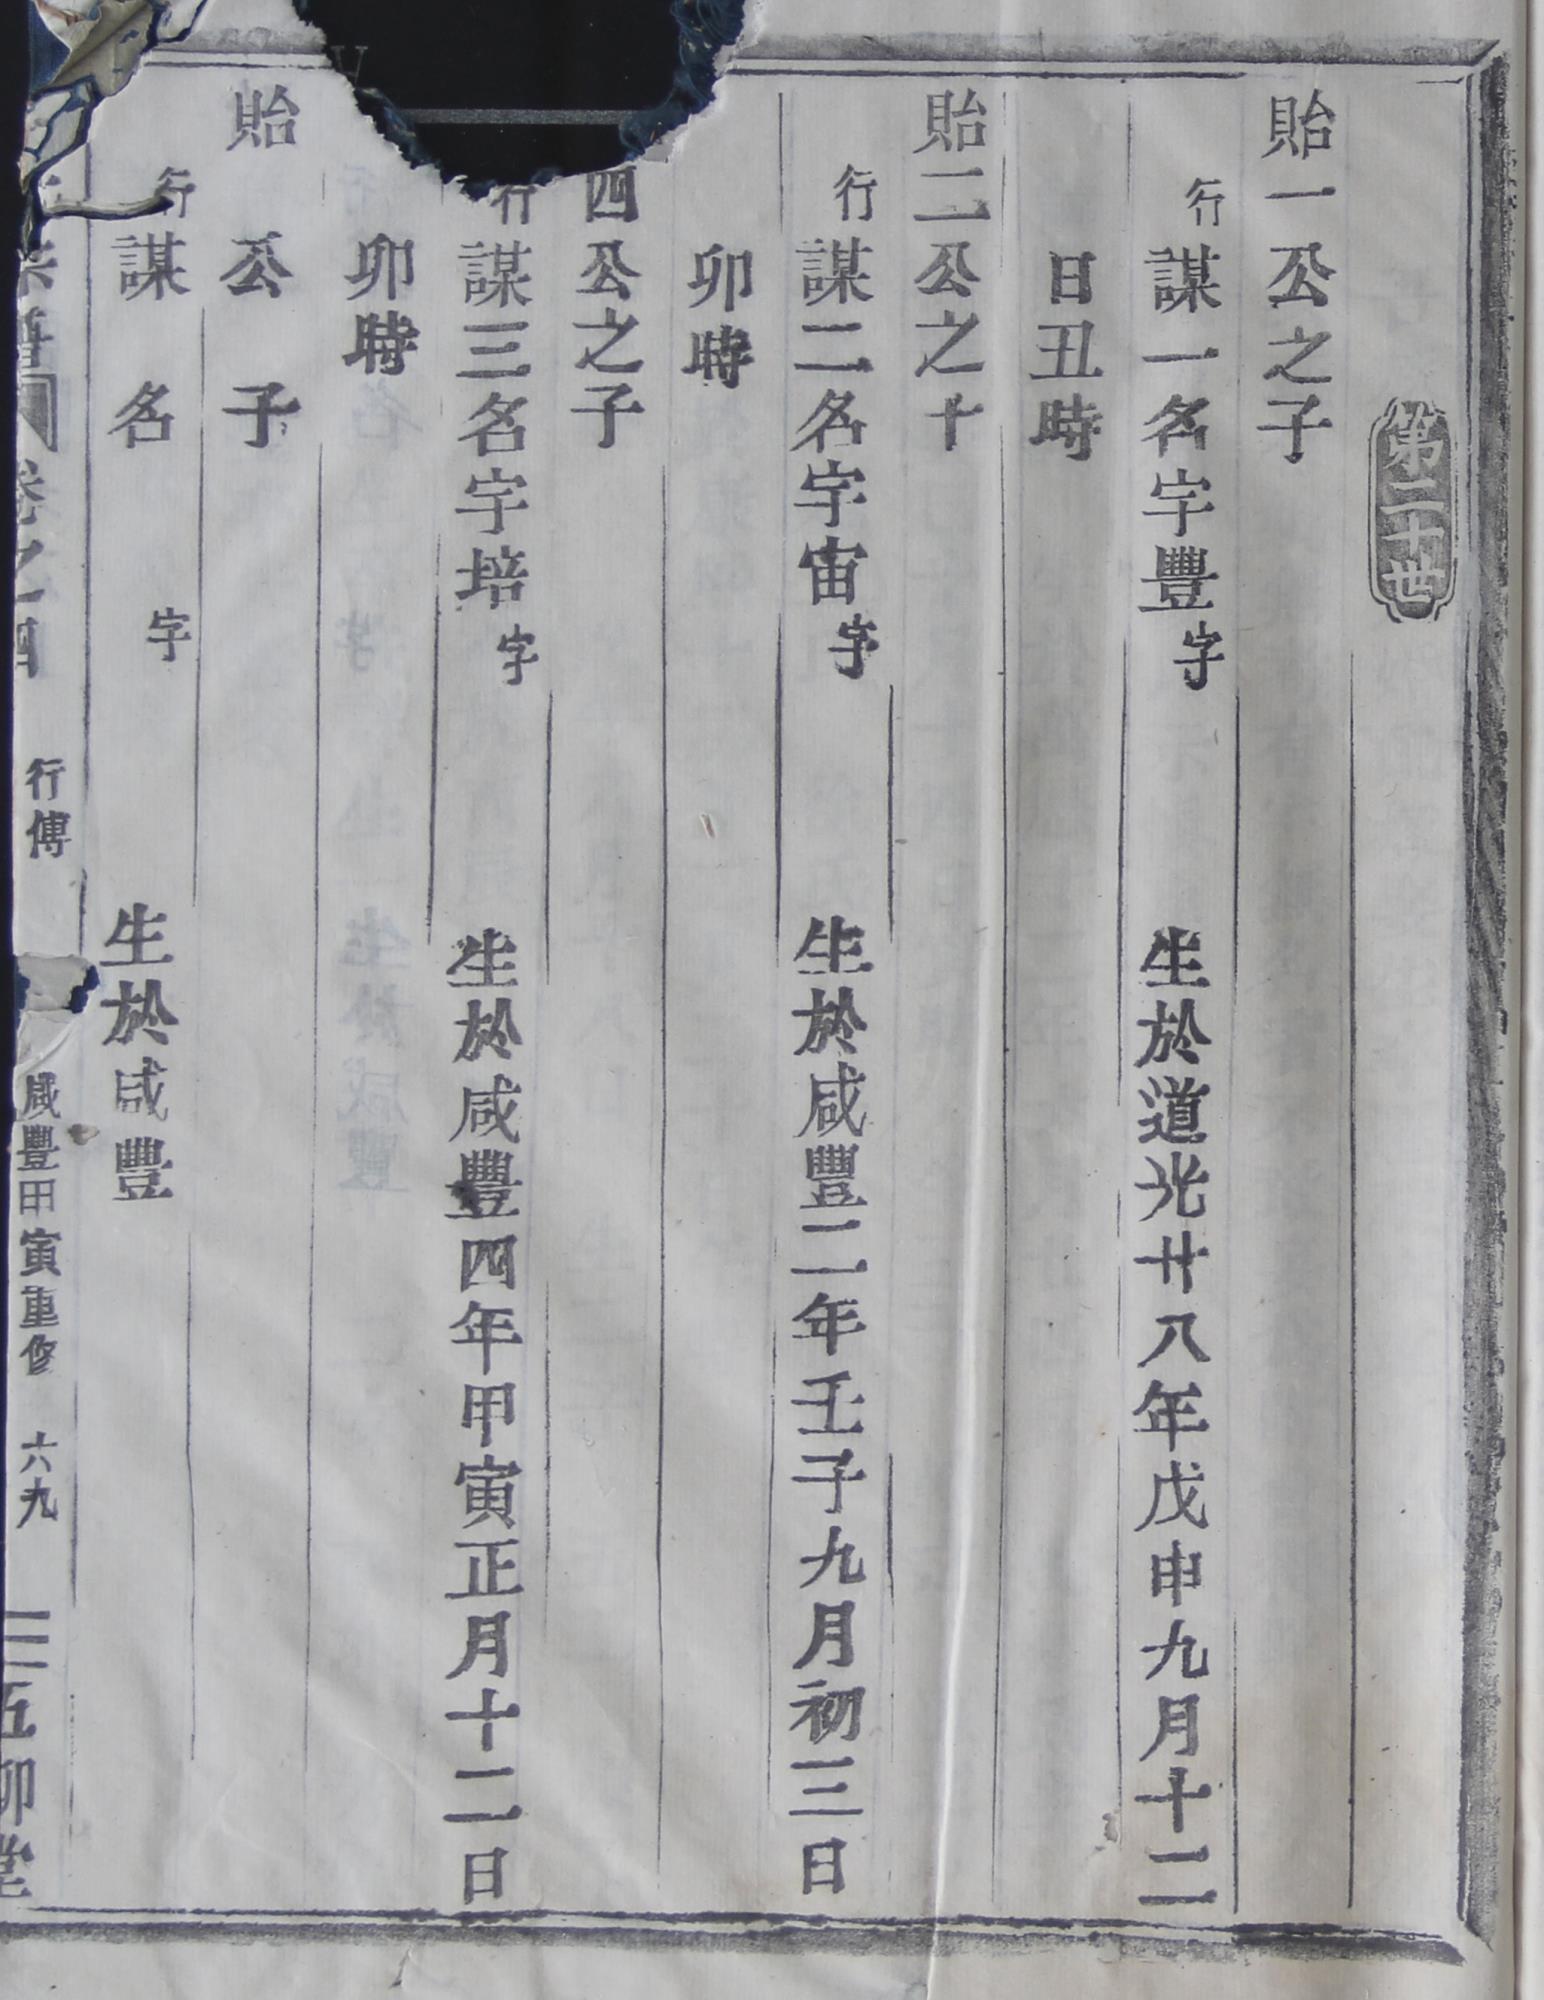 第二十世
貽一公之子
行謀一名字豐字 生於道光廿八年戊申九月十二
日丑時
貽二公之子
行謀二名字宙字 生於咸豐二年壬子九月初三日
卯時
四公之子
行謀三名字培字 生於咸豐四年甲寅正月十二日
卯時
貽 公 子
行謀 名 字 生於咸豐
譜 卷之四 行傳 咸豐甲寅重修 六九 五柳堂